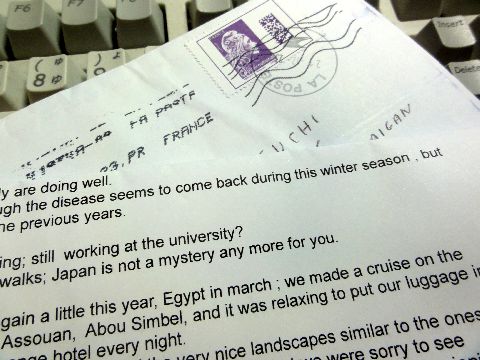 F6
F7
Insert
Delete
8
(
ゆ
)
9
(
LA POSTE
LA POSTE
23.PR FRANCE
UCHI
AIGAN
ly are doing well.
ugh the disease seems to come back during this winter season , but
he previous years.
ing; still working at the university?
walks; Japan is not a mystery any more for you.
gain a little this year, Egypt in march ; we made a cruise on the
Assouan, Abou Simbel, and it was relaxing to put our luggage in
nge hotel every night.
the very nice landscapes similar to the ones
we were sorry to see